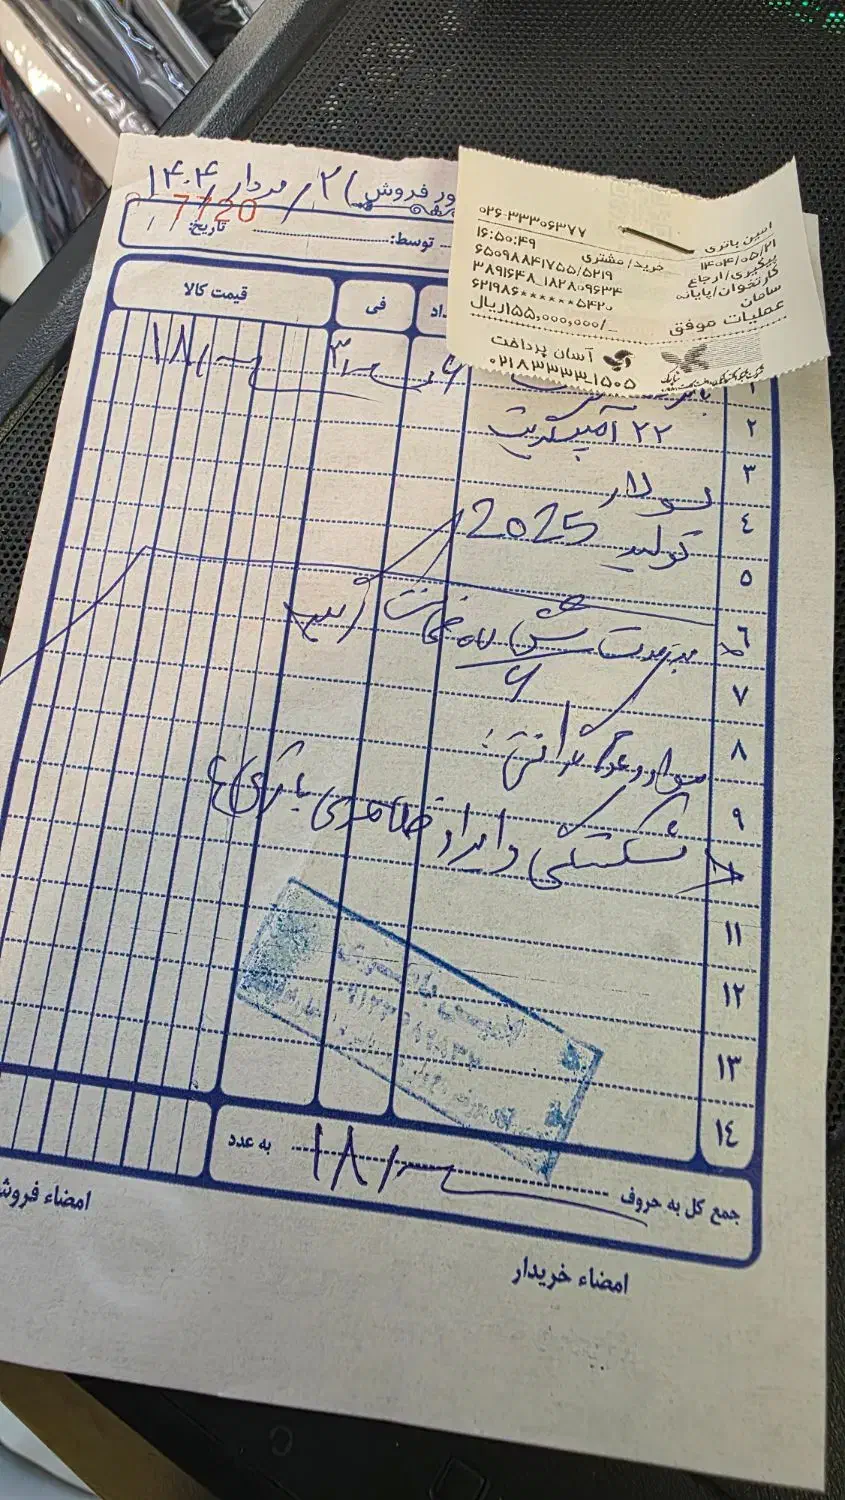 ور فروش
۲ / مرداد / ۱۴۰۴
7720
توسط:
تاریخ: / /
امین باتری ۰۲۶-۳۳۳۰۶۳۷۷
۱۴۰۴/۰۵/۲۱ ۱۶:۵۰:۴۹
پیگیری/ارجاع خرید/مشتری
کارتخوان/پایانه ۶۵۰۹۸۸۴۱۷۵۵/۵۲۱۹
سامان ۳۸۹۱۶۴۸_۱۸۲۸۰۹۶۳۴
عملیات موفق ۶۲۱۹۸۶******۵۴۲۰
۱۵۵,۰۰۰,۰۰۰/_ریال
آسان پرداخت
۰۲۱۸۳۳۳۳_۱۵۰۵
داد فی قیمت کالا
۱ ۶ ۳ ۱۸/
۲ ۲۲ آمپر
۳ سولار
۴ تولید 2025
۵
۶ به مدت شش ماه ضمانت
۷ ۶
۸ موارد عدم گارانتی:
۹
شکستگی و ایراد ظاهری باتری
۱۱
۱۲
۱۳
۱۴
جمع کل به حروف به عدد ۱۸/
امضاء خریدار امضاء فروش